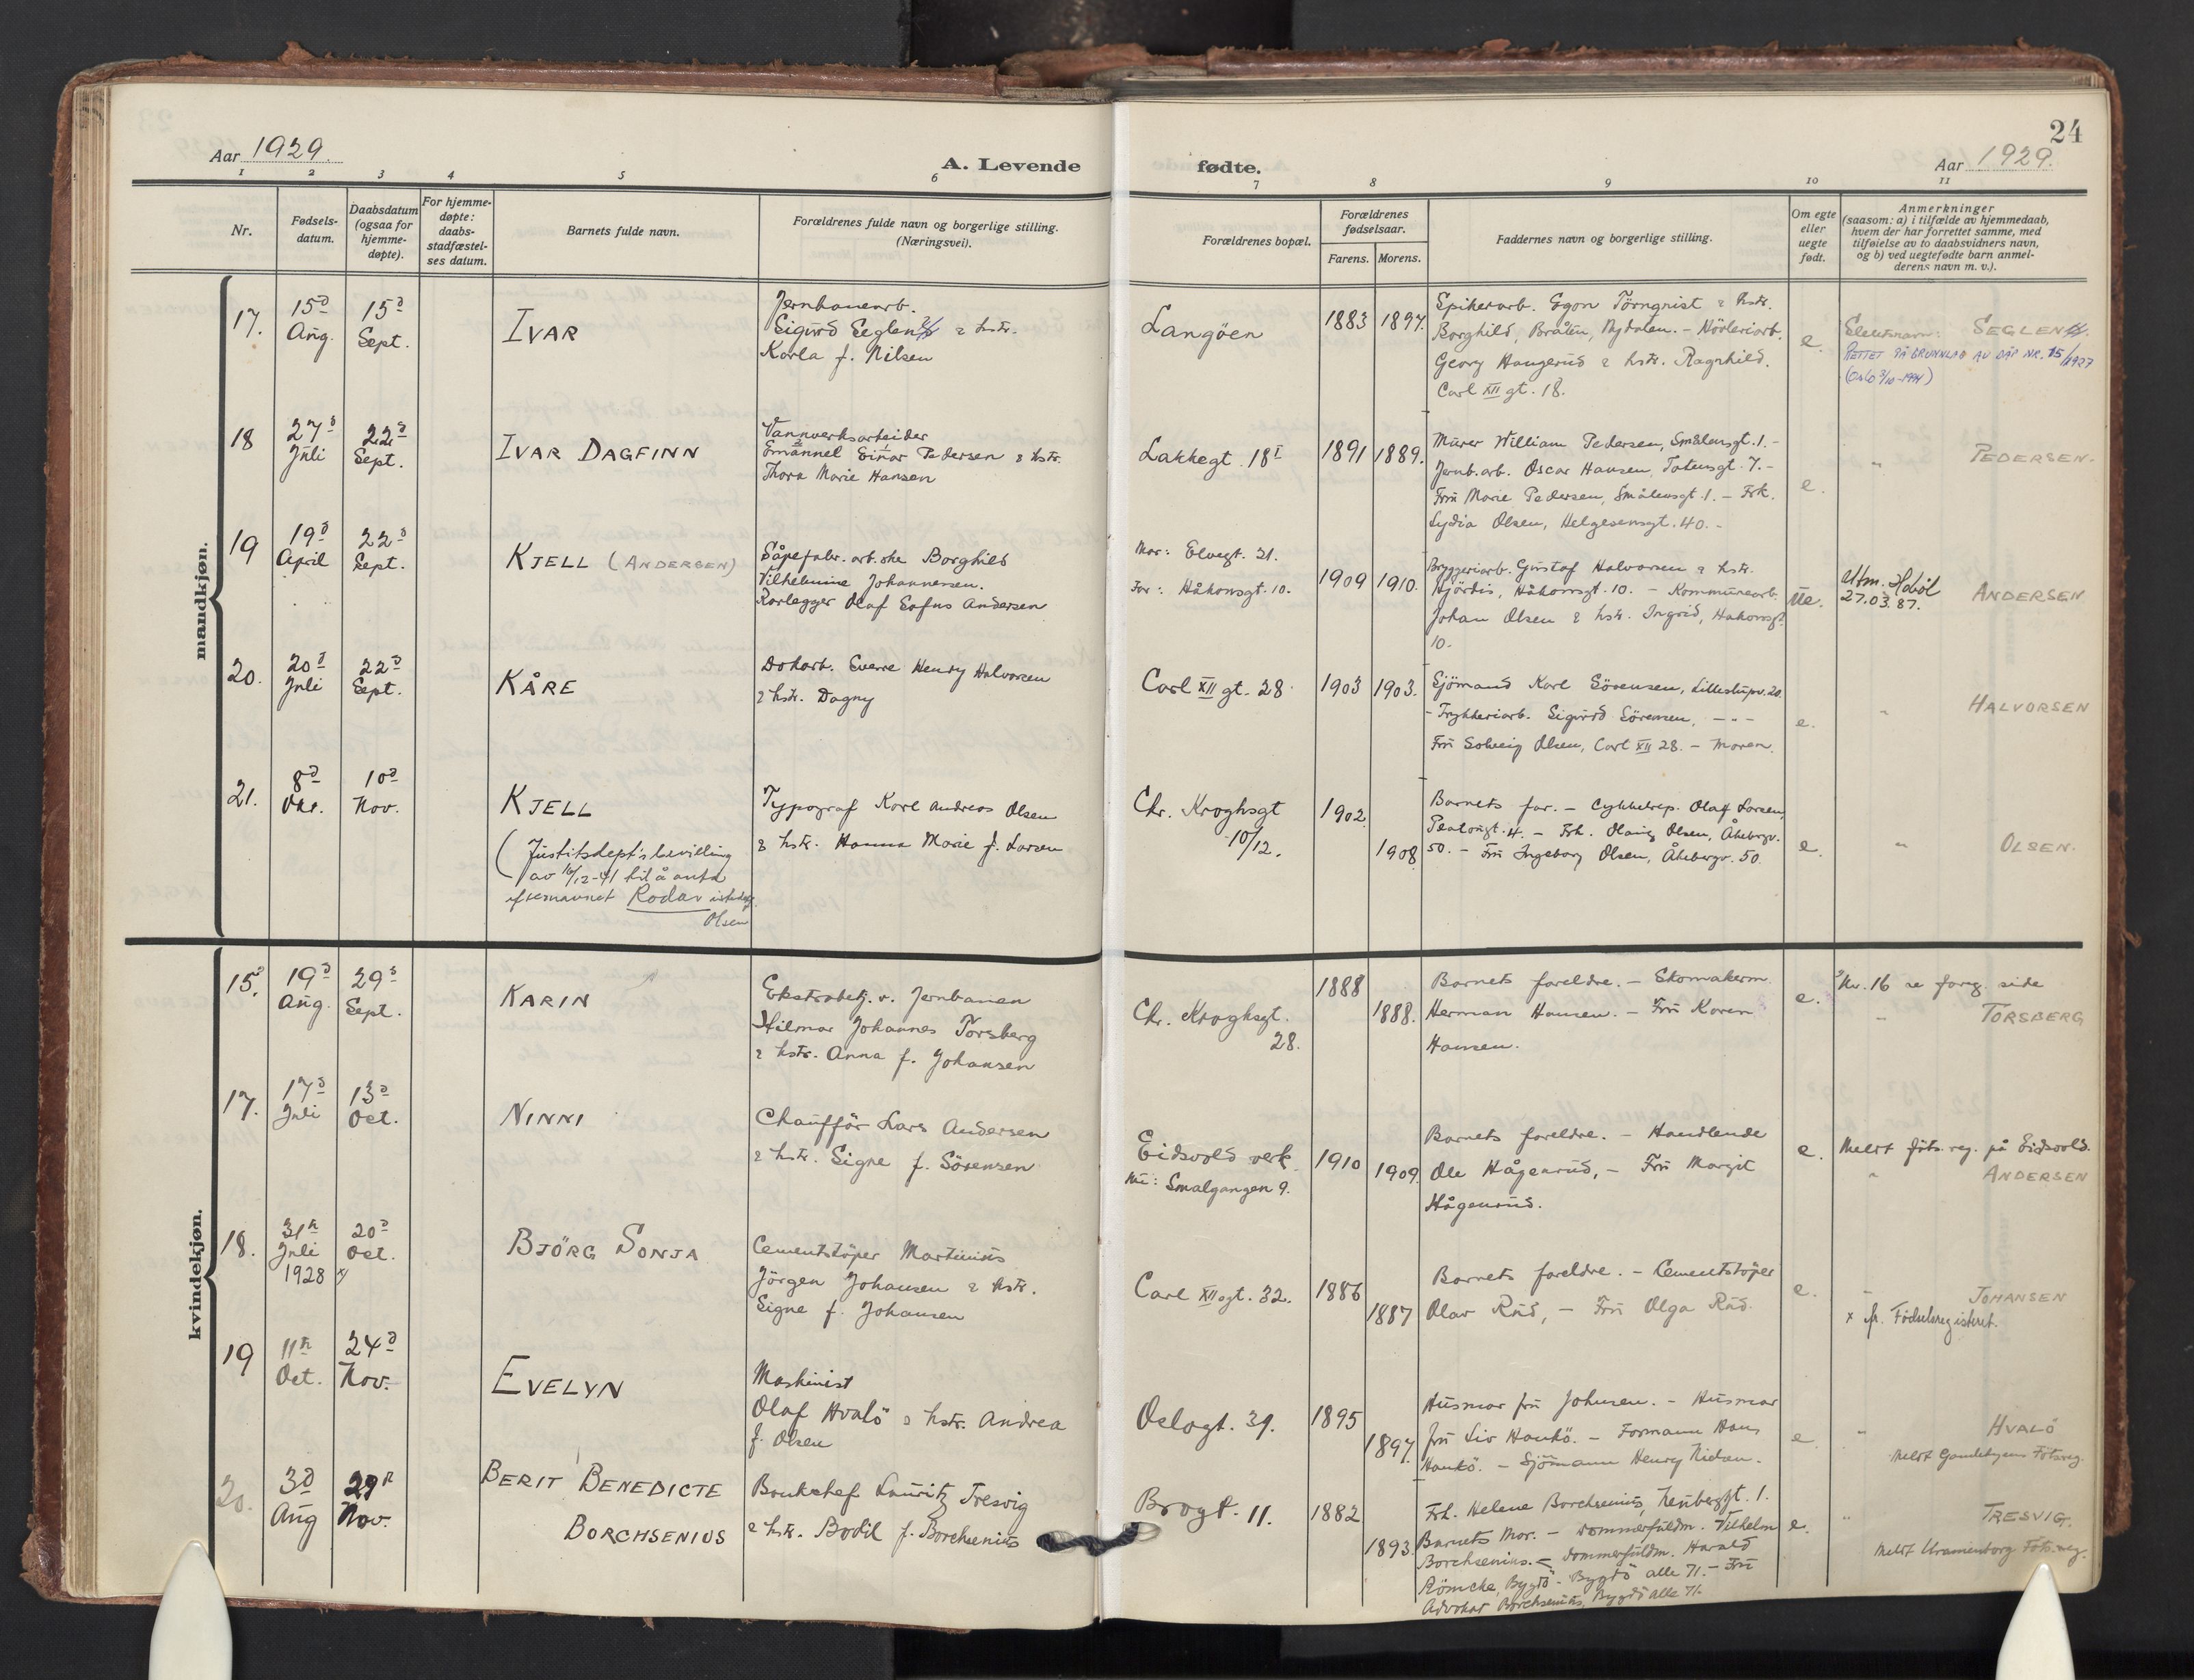 24
Aar 1929.
A. Levende fødte.
Aar 1929.
1 2 3 4 5 6 7 8 9 10 11
Nr.
Fødsels-
datum.
Daabsdatum
(ogsaa for
hjemme-
døpte).
For hjemme-
døpte:
daabs-
stadfæstel-
ses datum.
Barnets fulde navn.
Forældrenes fulde navn og borgerlige stilling.
(Næringsvei).
Forældrenes bopæl.
Forældrenes
fødselsaar.
Farens. Morens.
Faddernes navn og borgerlige stilling.
Om egte
eller
uegte
født.
Anmerkninger
(saasom: a) i tilfælde av hjemmedaab,
hvem der har forrettet samme, med
tilføielse av to daabsvidners navn,
og b) ved uegtefødte barn anmel-
derens navn m. v.).
mandkjøn.
17.
15d
Aug.
15d
Sept.
IVAR
Jernbanearb.
Sigurd Seglen & hstr.
Karla f. Nilsen
Langöen
1883 1897.
Spikerarb. Egon Törnqvist & hstr.
Borghild, Bråten, Nydalen. - Növleriarb.
Georg Haugerud & hstr. Ragnhild.
Carl XII gt. 18.
e.
Slektsnavn: SEGLEN
RETTET PÅ GRUNNLAG AV DÅP NR. 15/1927
(Oslo 3/10-1994)
18
27d
Juli
22d
Sept.
IVAR DAGFINN
Vannverksarbeider
Emanuel Einar Pedersen & hstr.
Thora Marie Hansen
Lakkegt. 18 I
1891 1889.
Murer William Pedersen, Smålensgt. 1. -
Jernb.arb. Oscar Hansen, Totensgt. 7. -
Fru Marie Pedersen, Smålensgt. 1. - Frk.
Lydia Olsen, Helgesensgt. 40. -
e.
" PEDERSEN.
19
19d
April
22d
Sept.
KJELL (ANDERSEN)
Såpefabr. arb.ske Borghild
Vilhelmine Johannesen.
Rørlegger Olaf Sofus Andersen
Mor: Elvegt. 21.
Far: Håkonsgt. 10.
1909 1910.
Bryggeriarb. Gustaf Halvorsen & hstr.
Hjördis, Håkonsgt. 10. - Kommunearb.
Johan Olsen & hstr. Ingrid, Hakonsgt.
10.
ue.
Attm.
27.03.87.
ANDERSEN
20.
20d
Juli
22d
Sept.
KÅRE
Dokarb. Sverre Henry Halvorsen
& hstr. Dagny
Carl XII gt. 28.
1903 1903.
Sjömand Karl Sörensen, Lillestupv. 20.
- Trykkeriarb. Sigurd Sörensen, - " -
Fru Solveig Olsen, Carl XII 28. - Moren.
e.
" HALVORSEN
21.
8d
Okt.
10d
Nov.
KJELL
(Justitsdept's bevilling
av 16/12-41 til å anta
efternavnet Rodar istedetf.
Olsen
Typograf Karl Andreas Olsen
& hstr. Hanna Marie f. Larsen
Chr. Kroghsgt
10/12.
1902.
1908
Barnets far. - Cykkelrep. Olaf Larsen,
Platousgt. 4. - Frk. Olaug Olsen, Åkebergv.
50. - Fru Ingeborg Olsen, Åkebergv. 50.
e.
" OLSEN.
kvindekjøn.
15.
19d
Aug.
29d
Sept.
KARIN
Ekstrabetj. v. Jernbanen
Hilmar Johannes Torsberg
& hstr. Anna f. Johansen
Chr. Kroghsgt.
28.
1888
1888.
Barnets foreldre. - Skomakerm.
Herman Hansen. - Fru Karen
Hansen.
e.
Nr. 16 se foreg. side
" TORSBERG
17.
17d
Juli
13d
Oct.
NINNI
Chaufför Lars Andersen
& hstr. Signe f. Sörensen
Eidsvold verk
Nu: Smalgangen 9.
1910 1909
Barnets foreldre. - Handlende
Ole Hågensrud, - Fru Margit
Hågensrud.
e.
Meldt föds. reg. på Eidsvold.
" ANDERSEN
18.
31te
Juli
1928 x)
20d
Oct.
BJÖRG SONJA
Cementstöper Martinius
Jörgen Johansen & hstr.
Signe f. Johansen
Carl XII gt. 32.
1886
1887
Barnets foreldre. - Cementstöper
Olav Rud, - Fru Olga Rud.
e.
" JOHANSEN
x fr. Födselsregisteret.
19
11te
Oct.
24d
Nov.
EVELYN
Maskinist
Olaf Hvalö & hstr. Andrea
f. Olsen
Oslogt. 39.
1895
1897.
Husmor fru Johnsen. - Husmor
fru Liv Hankö. - Formann Hans
Hankö. - Sjömann Henry Nielsen.
e.
" HVALÖ
Meldt Gamlebyens Fötsreg.
20.
3d
Aug
29n
Nov.
BERIT BENEDICTE
BORCHSENIUS
Bankchef Lauritz Tresvig
& hstr. Bodil f. Borchsenius
Brogt. 11.
1882
1893.
Frk. Helene Borchsenius, Neuberggt. 1.
Barnets Mor. - Dommerfuldm. Vilhelm
Borchsenius. - Dommerfuldm. Harald
Römcke, Bygdö. Bygdö alle 71. - Fru
Advokat Borchsenius, Bygdö alle 71.
e.
" TRESVIG.
Meldt Uranienborg Föts.reg.